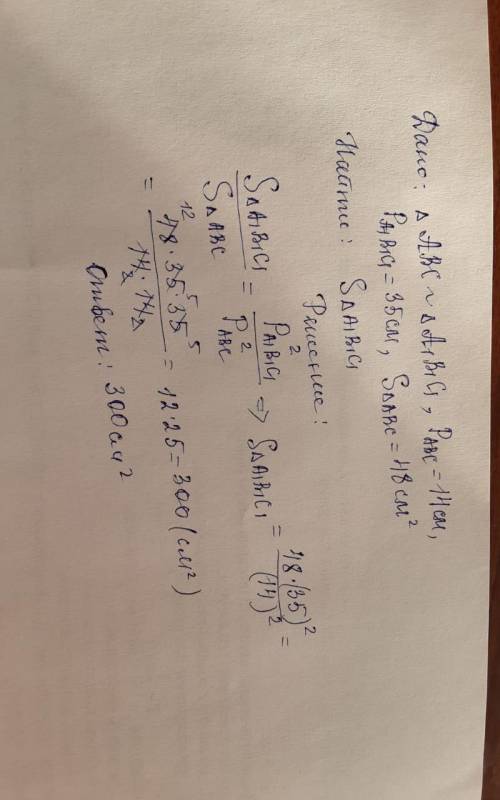 Дано: Δ ABC ~ Δ A1B1C1, PABC = 14 см,
PA1B1C1 = 35 см, SΔABC = 48 см²
Найти: SΔA1B1C1
Решение:
SΔA1B1C1 / SΔABC = P²A1B1C1 / P²ABC => SΔA1B1C1 = 48·(35)² / (14)² =
= 12 48·35 5·35 5 / 14 2·14 2 = 12·25 = 300 (см²)
Ответ: 300 см²